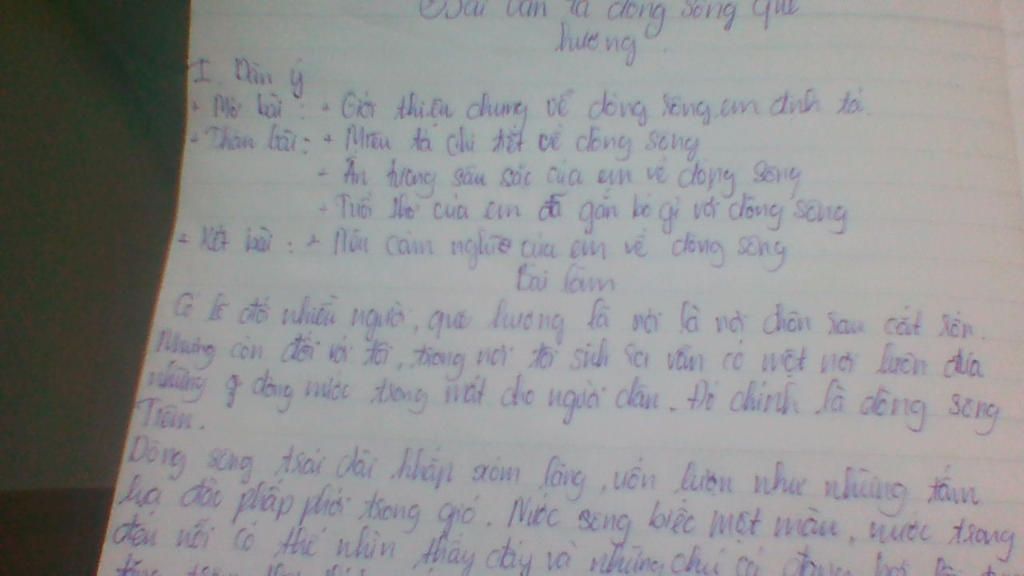 Bài văn tả dòng sông quê
hương.
I. Dàn ý
+ Mở bài : + Giới thiệu chung về dòng sông em định tả.
+ Thân bài : + Miêu tả chi tiết về dòng sông
+ Ấn tượng sâu sắc của em về dòng sông
+ Tuổi thơ của em đã gắn bó gì với dòng sông
+ Kết bài : + Nêu cảm nghĩ của em về dòng sông
Bài làm
Có lẽ đối nhiều người, quê hương là nơi là nơi chôn sau cắt sốn.
Nhưng còn đối với tôi, trong nơi tôi sinh sa vẫn có một nơi luôn đưa
những dòng nước trong mát cho người dân. Đó chính là dòng sông
Dòng sông trải dài khắp xóm làng, uốn lượn như những tấm
lụa đào phấp phới trong gió. Nước sông biếc một màu, nước trong
đến nỗi có thể nhìn thấy đáy và những chú cá đang bơi